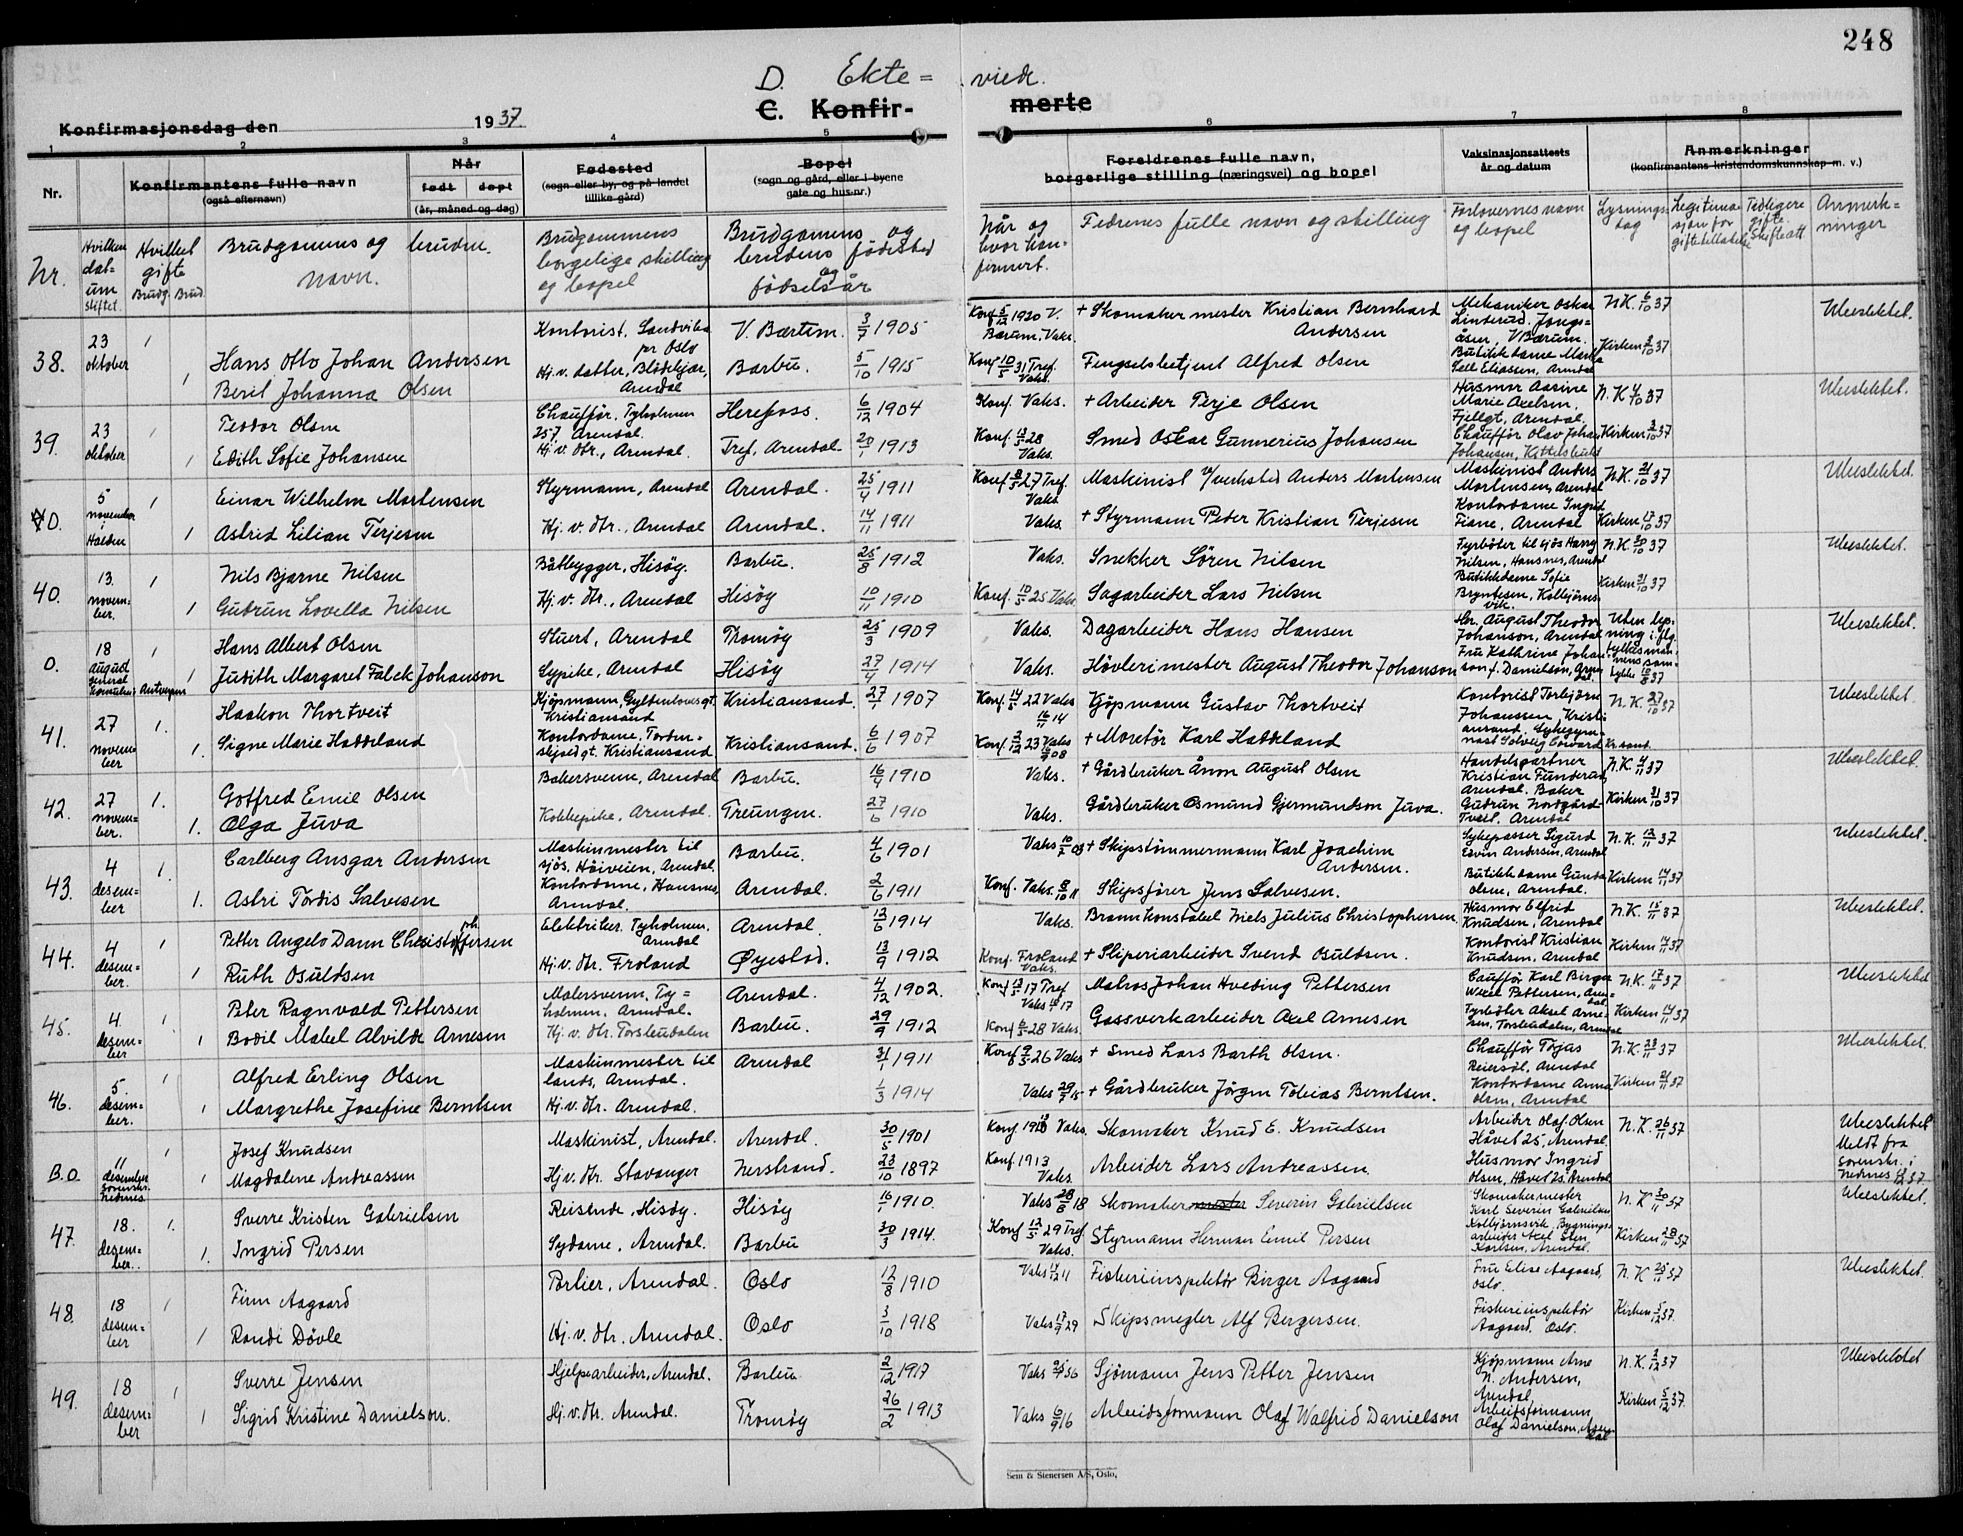 248
D. Ekte = viede.
C. Konfir- merte
Konfirmasjonsdag den 1937.
1 2 3 4 5 6 7 8
Nr. Konfirmantens fulle navn (også efternavn) Når født døpt (år, måned og dag) Fødested (sogn eller by, og på landet tillike gård) Bopel (sogn og gård, eller i byene gate og hus-nr.) Foreldrenes fulle navn, borgerlige stilling (næringsvei) og bopel Vaksinasjonsattests år og datum Anmerkninger (konfirmantens kristendomskunnskap m. v.)
Nr. Hvilken datum viftet. Hvilket gifte Brudg. Brud. Brudgommens og brudens navn. Brudgommens borgelige stilling og bopel Brudgomens og brudens fødested og fødselsår Når og hvor konfirmert. Fedrenes fulle navn og stilling Forlovernes navn og bopel Lysningsdag Legitimasjon for giftetillatelse Tidligere gifte. Skifteatt Anmerkninger
38. 23 oktober 1 Hans Otto Johan Andersen Kontorist, Sandvika pr Oslo V. Bærum. 3/7 1905 Konf 5/12 1920 V. Bærum, Vaks. + Skomaker mester Kristian Bernhard Andersen Mekaniker Oskar Linderud, Jongsåsen, V Bærum. N.K. 6/10 37 Ubeslektet.
1 Beril Johanna Olsen Hj. v. datter, Blödekjær, Arendal Barbu. 5/10 1915 Konf 10/5 31 Tref. Vaks. Fengselsbetjent Alfred Olsen Butikkdame Marta Sell Eliassen, Arendal Kirken 3/10 37
39. 23 oktober 1 Teodor Olsen Chauffør, Tyholmen 257 Arendal. Herefoss. 6/12 1904 Konf. Vaks. + Arbeider Terje Olsen Husmor Aasine Marie Axelsen, Fjellgt, Arendal. N.K. 4/10 37 Ubeslektet.
1 Edith Sofie Johansen Hj. v. dtr., Arendal. Tref, Arendal 20/1 1913 Konf 13/5 28 Vaks. Smed Oskar Gunnerius Johansen Chauffør Olav Johan Johansen, Kittelsbukt Kirken 3/10 37
40. 5 november i Halden 1 Einar Wilhelm Mortensen Styrmann, Arendal Arendal. 25/4 1911 Konf 8/5 27 Tref. Vaks Maskinist v/verksted Anders Mortensen Maskinist Anders Mortensen, Arendal N.K. 21/10 37 Ubeslektet.
1 Astrid Lilian Terjesen Hj. v. dtr., Arendal Arendal. 14/11 1911 Vaks. + Styrmann Peder Kristian Terjesen Kontordame Ingrid Fiane, Arendal Kirken 17/10 37
40. 13. november. 1 Nils Bjarne Nilsen Båtbygger, Hisøy. Barbu. 25/8 1912 Vaks. Snekker Søren Nilsen Fyrbøter til sjøs Harry Nilsen, Hansnes, Arendal N.K. 30/10 37 Ubeslektet.
1 Gudrun Lovella Nilsen Hj. v. dtr., Arendal Hisøy 10/11 1910 Konf. 10/5 25 Vaks Sagarbeider Lars Nilsen Butikkdame Sofie Bryntesen, Kolbjørnsvik. Kirken 31/10 37
0. 18 august general konsulat Antverpen 1 Hans Albert Olsen Stuert, Arendal Tromøy 25/3 1909 Vaks. Dagarbeider Hans Hansen Hr. August Theodor Johanson, Arendal Uten lysning i flg. Ubeslektet.
1 Judith Margaret Falck Johanson Sypike, Arendal Hisøy 27/4 1914 Vaks. Høvlerimester August Theodor Johanson Fru Kathrine Johanson f. Danielson, Arendal
41. 27 november 1. Haakon Thortveit Kjøpmann, Gyldenlovesgt. Kristiansand Kristiansand. 27/1 1907 Konf. 14/5 22 Vaks 16/11 14 Kjøpmann Gustav Thortveit Kontorist Torbjørn Johanssen, Kristiansand, N.K. 27/10 37 Ubeslektet.
1. Signe Marie Haddeland Kontordame, Tordenskjoldgt. Kristiansand Kristiansand. 6/6 1907 Konf. 2/12 23 Vaks + Moretør Karl Haddeland Sykegymnast Solveig Kr.sand.
42. 27 november. 1. Gotfred Emil Olsen Bakersvenn, Arendal Barbu. 16/4 1910 Vaks. + Gårdbruker Ånon August Olsen Handelsgartner Kristian Funderud, Arendal. N.K. 4/11 37 Ubeslektet.
1. Olga Juva Kokkepike, Arendal. Treungen. 27/6 1910 Vaks. Gårdbruker Osmund Gjermundson Juva. Baker Gudrun Nordgård-Tveit, Arendal Kirken 31/10 37
43. 4 desember 1. Carlberg Ansgar Andersen Maskinmester til sjøs. Høiveien, Arendal. Barbu. 4/6 1901 Vaks 10/7 03 + Skipstømmermann Karl Joachim Andersen. Sykepasser Sigurd Edvin Andersen, Arendal N.K. 12/11 37 Ubeslektet.
1. Astri Tordis Salvesen Kontordame, Hansnes, Arendal. Arendal. 2/6 1911 Konf. Vaks. 8/10 11 Skipsfører Jens Salvesen. Butikkdame Gunda Olsen, Arendal. Kirken 14/11 37
44. 4 desember. 1 Petter Angelo Dann Christophersen Elektriker. Tyholmen. Arendal Arendal. 13/6 1914 Vaks. Brannkonstabel Niels Julius Christophersen Husmor Elfrid Knudsen, Arendal N.K. 15/11 37 Ubeslektet.
1 Ruth Osuldsen Hj. v. dtr. Froland Øyestad. 13/9 1912 Konf. Froland Vaks. + Sliperiarbeider Svend Osuldsen. Kontorist Kristian Knudsen, Arendal Kirken 14/11 37
45. 4. desember 1 Peter Ragnvald Pettersen Malersvenn, Tyholmen, Arendal. Arendal. 4/12 1902. Konf 13/5 17 Tref Vaks 17 Matros Johan Hveding Pettersen Cauffør Karl Birger Pettersen, Arendal. N.K. 17/11 37 Ubeslektet
1 Bodil Mabel Alvilde Arnesen Hj. v. dtr. Torsbudalen Barbu. 29/9 1912 Konf 6/5 28 Vaks. Gassverkarbeider Axel Arnesen Fyrbøter Aksel Arnesen, Torsbudalen, Arendal Kirken 14/11 37
46. 5. desember. 1 Alfred Erling Olsen Maskinmester til lands, Arendal. Arendal 31/1 1911 Konf 9/5 26 Vaks + Smed Lars Barth Olsen. Chauffør Tøjas Reiersøl, Arendal N.K. 23/11 37 Ubeslektet.
1 Margrethe Josefine Berntsen Hj. v. dtr. Arendal. 1/3 1914 Vaks 29/9 15 + Gårdbruker Jørgen Tobias Berntsen. Kontordame Anna Olsen, Arendal Kirken 21/11 37
B.O. 11 desember sorenskr. Nedenes 1 Josef Knudsen Maskinist, Arendal. Arendal. 30/5 1901 Konf. 1918 Vaks. Skomaker Knud E. Knudsen Arbeider Olaf Olsen Håvet 25, Arendal. N.K. 26/11 37 Ubeslektet Meldt fra sorenskr. i Nedenes
1 Magdalene Andreassen Hj. v. dtr. Stavanger Nerstrand. 23/10 1897 Konf. 1913 Vaks. Arbeider Lars Andreassen. Husmor Ingrid Olsen, Håvet 25, Arendal
47. 18. desember. 1. Sverre Kristen Gabrielsen Reisende, Hisøy. Hisøy 16/1 1910. Vaks 28/6 18 Skomakermester Severin Gabrielsen Skomakermester Karl Severin Gabrielsen Kolbjørnsvik, N.K. 30/11 37 Ubeslektet.
1. Ingrid Persen Sydame, Arendal. Barbu 30/3 1914. Konf 12/5 29 Tref Vaks. Styrmann Herman Emil Persen Bygningsarbeider Axel Sten Karlsen, Arendal. Kirken 28/11 37
48. 18 desember 1 Finn Aagaard Portier, Arendal. Oslo 12/8 1910 Vaks 4/12 11 Fiskeriinspektør Birger Aagaard Fru Elise Aagaard, Oslo. N.K. 25/11 37 Ubeslektet.
1 Randi Døvle Hj. v. dtr. Arendal. Oslo 3/10 1918 Vaks 17/9 29 Skipsmegler Alf Bergersen. Fiskeriinspektør Aagaard, Oslo. Kirken 5/12 37.
49. 18 desember 1 Sverre Jensen Hjelpearbeider, Arendal. Barbu 2/12 1917 Vaks Sjømann Jens Petter Jensen Kjøpmann Arne N. Andersen, Arendal N.K. 2/12 37 Ubeslektet
1 Sigrid Kristine Danielson. Hj. v. dtr. Arendal. Tromøy 26/2 1913 Vaks 6/9 16 Arbeidsformann Olaf Walfrid Danielson Arbeidsformann Olaf Danielson, Arendal Kirken 5/12 37.
Sem & Stenersen A/S, Oslo.